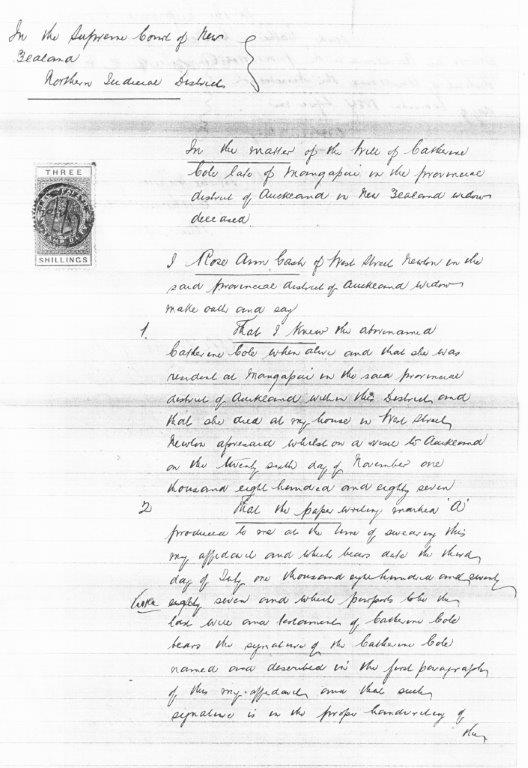 In the Supreme Court of New
Zealand
Northern Judicial District
THREE
SHILLINGS
In the matter of the Will of Catherine
Cole late of Mangapai in the provincial
district of Auckland in New Zealand widow
deceased
I Rose Ann Cash of West Street Newton in the
said provincial district of Auckland widow
make oath and say
1. That I knew the abovenamed
Catherine Cole when alive and that she was
resident at Mangapai in the said provincial
district of Auckland within this District and
that she died at my house in West Street
Newton aforesaid whilst on a visit to Auckland
on the twenty sixth day of November one
thousand eight hundred and eighty seven
2 That the paper writing marked 'A'
produced to me at the time of swearing this
my affidavit and which bears date the third
day of July one thousand eight hundred and seventy
eighty seven and which purports to be the
last will and testament of Catherine Cole
bears the signature of the Catherine Cole
named and described in the first paragraph
of this my affidavit and that such
signature is in the proper handwriting of
the